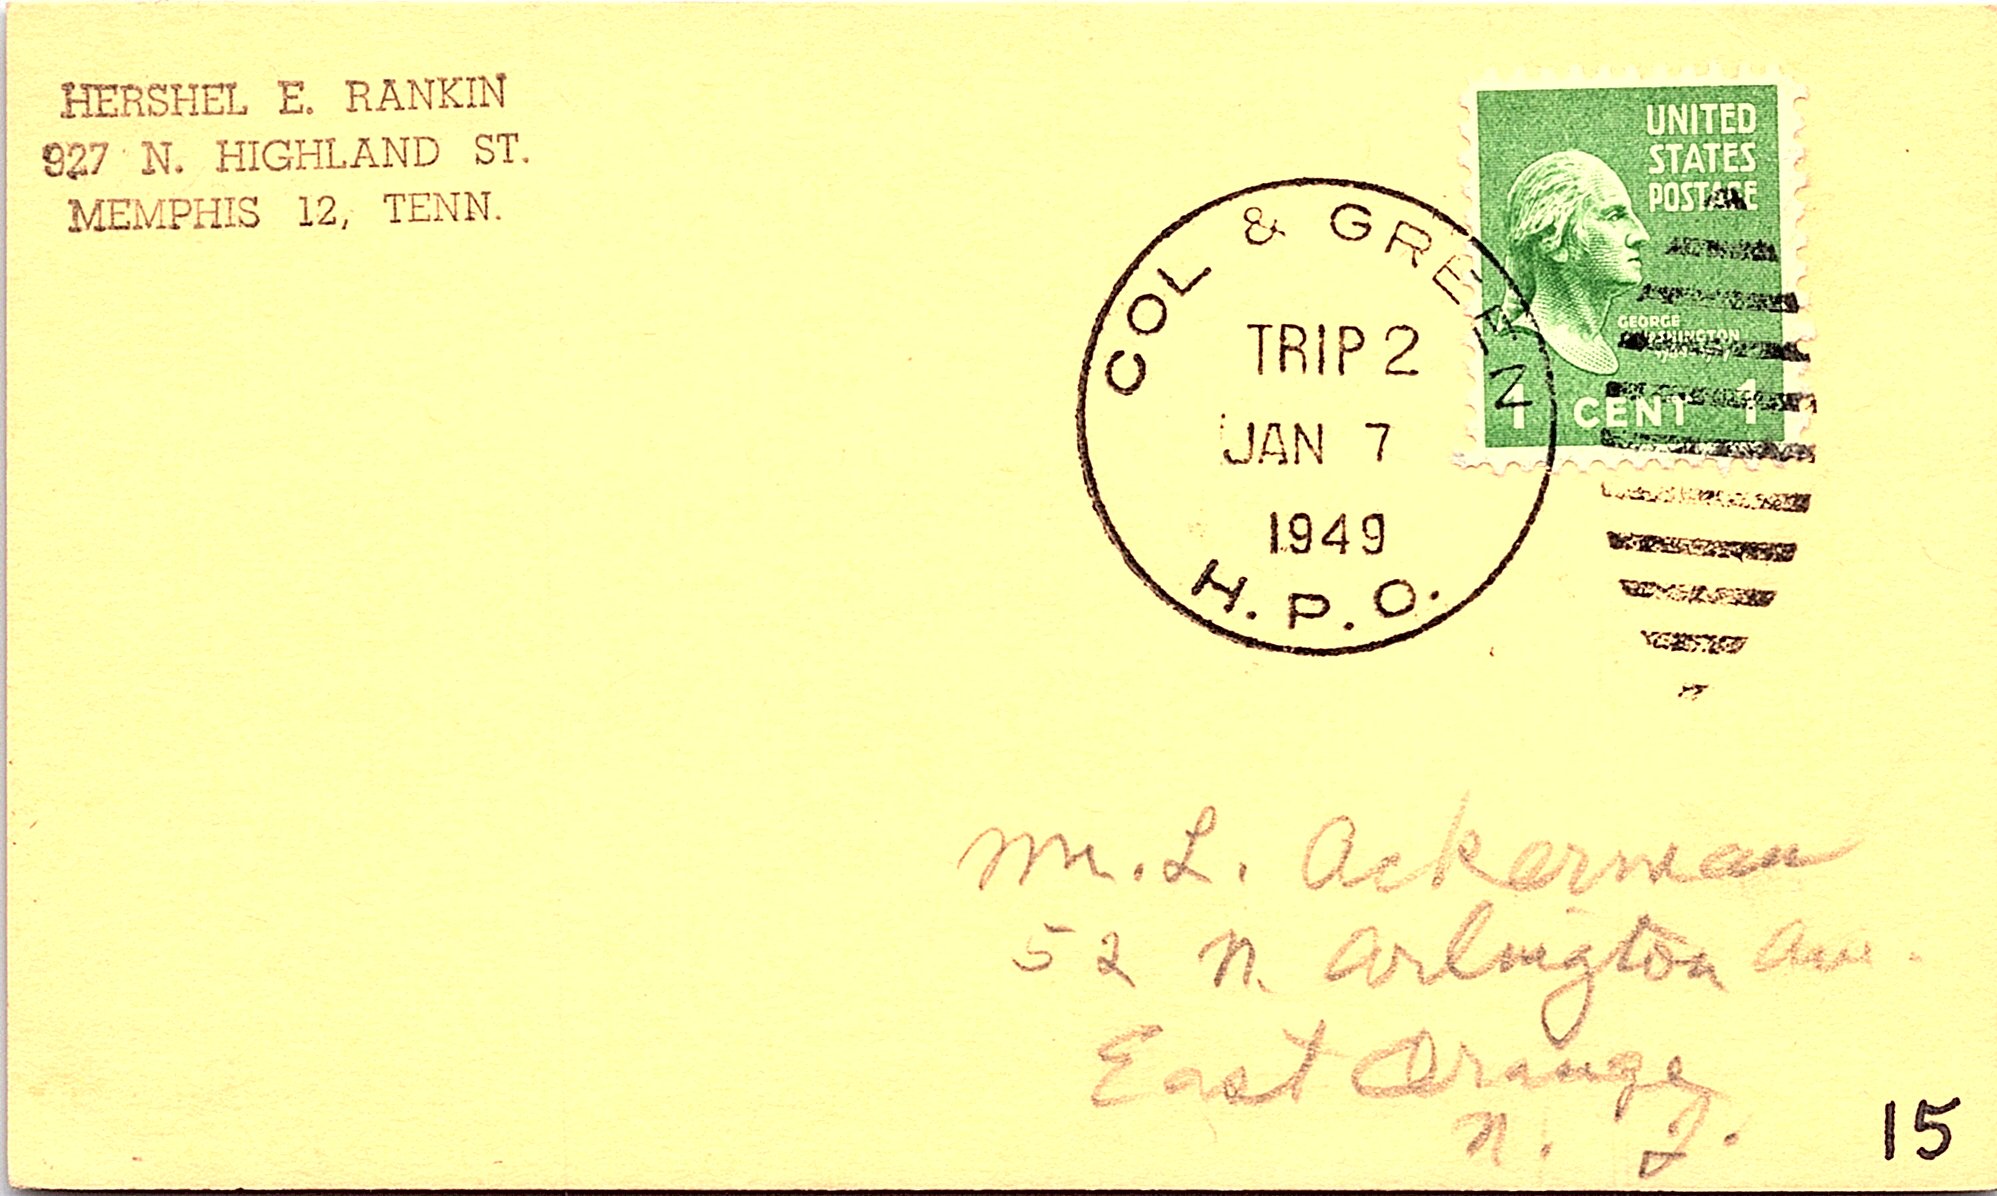 HERSHEL E. RANKIN
927 N. HIGHLAND ST.
MEMPHIS 12, TENN.
UNITED
STATES
POSTAGE
GEORGE
WASHINGTON
1 CENT 1
COL & GREEN
TRIP 2
JAN 7
1949
H.P.O.
Mr. L. Ackerman
52 N. Arlington Ave.
East Orange
N. J.
15